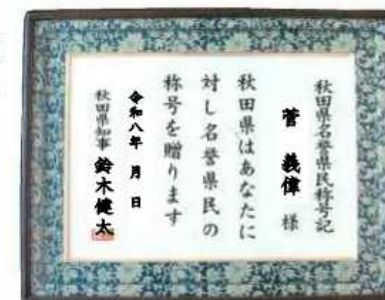 秋田県名誉県民称号記
菅 義偉 様
秋田県はあなたに
対し名誉県民の
称号を贈ります
令和八年 月 日
秋田県知事 鈴木健太